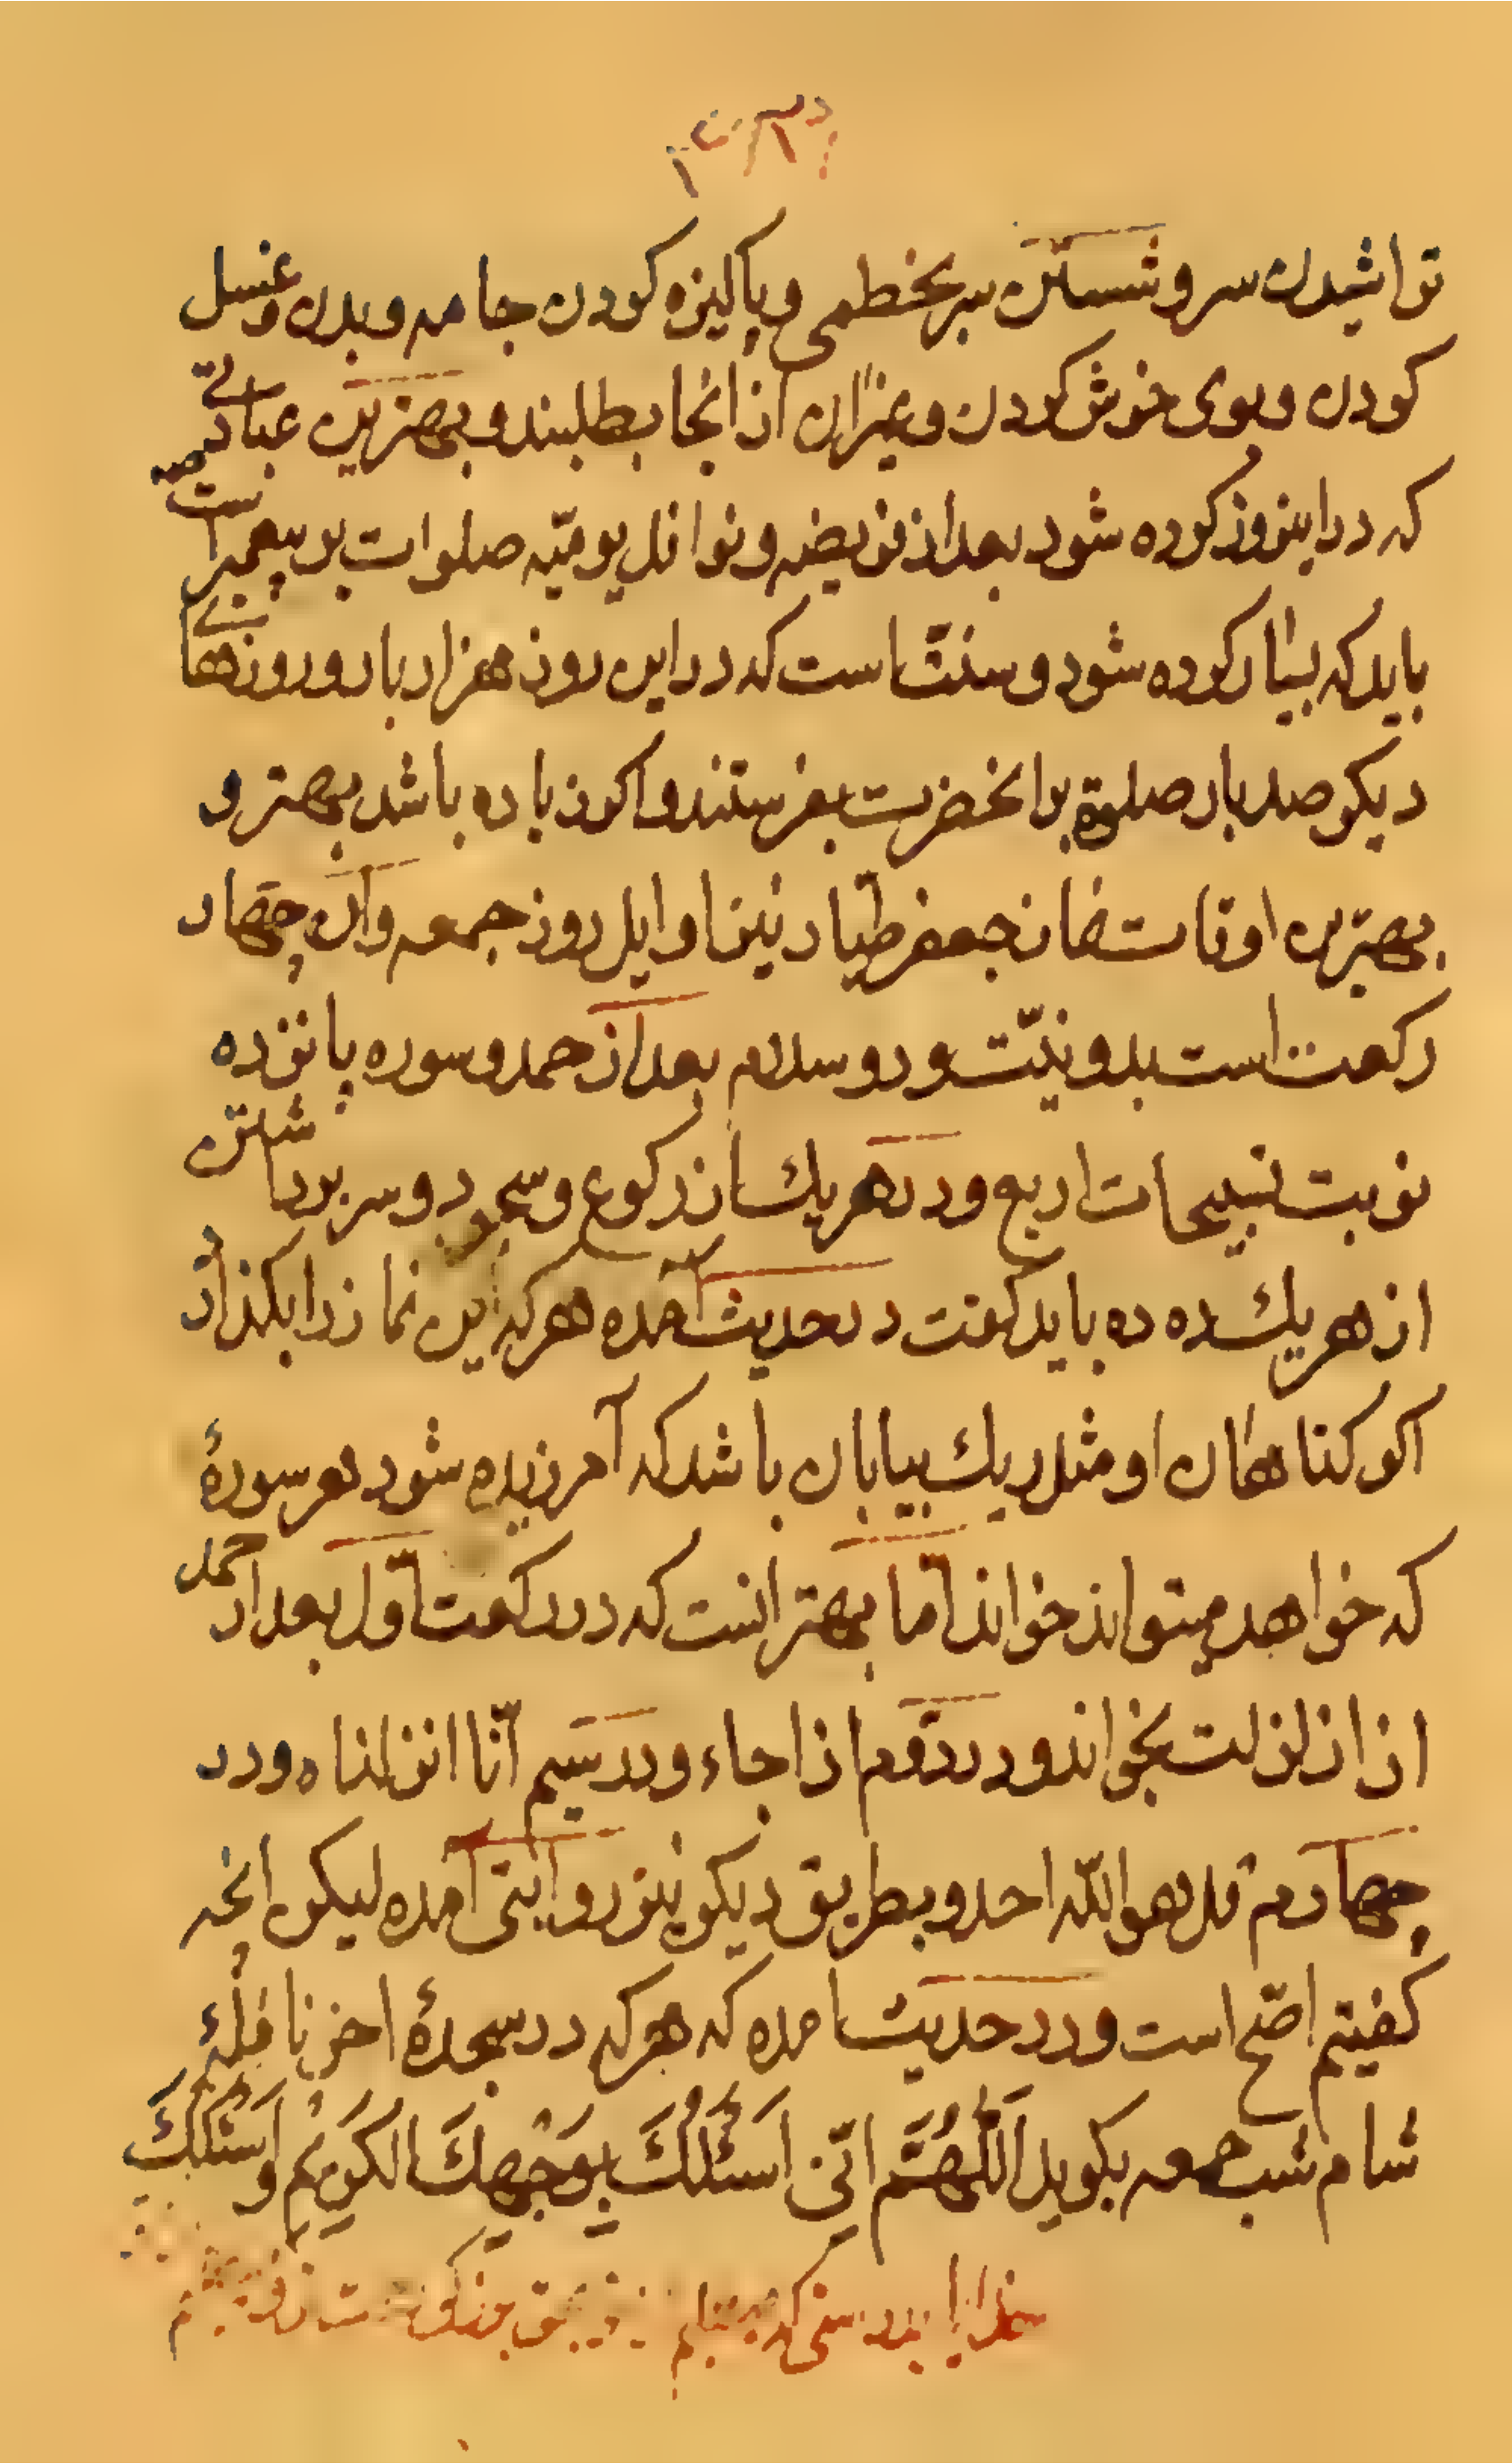 تراشیدن سر و شستن سر بخطمی و پاکیزه کردن جامه و بدن و غسل
کردن و بوی خوش کردن و غیر ان از انجا بطلبند و بهترین عبادتی
که در اینروز کرده شود بعد از فریضه و نوافل یومیّه صلوات بر پیغمبر است
باید که بسیار کرده شود و سنّت است که در این روز هزار بار و روزهای
دیکر صد بار صلوة بر انحضرت بفرستند و اکر زیاده باشد بهتر و
بهترین اوقات نماز جعفر طیّار نیز اوایل روز جمعه و ان چهار
رکعت است بدو نیّت و دو سلام بعد از حمد و سوره پانزده
نوبت تسبیحات اربع و در هر یک از رکوع و سجود و سر برداشتن
از هر یک ده ده باید کفت در حدیث آمده هر که این نماز را بکذارد
اکر کناهان او مثل ریک بیابان باشد که آمرزیده شود هر سورهٔ
که خواهد میتواند خواند امّا بهتر انست که در رکعت اوّل بعد از حمد
اذا زلزلت بخواند و در دوّم اذا جاء و در سیم انّا انزلناه و در
چهارم قل هو اللّه احد و بطریق دیکر نیز روایتی آمده لیکن انچه
کفیتم اصّح است و در حدیث امده که هر که در سجدهٔ اخر نافلهٔ
شام شب جمعه بکوید اَللّهُمَّ اِنّی اَسئَلُکَ بِوَجهِکَ الکَریمِ و اَسئَلُکَ